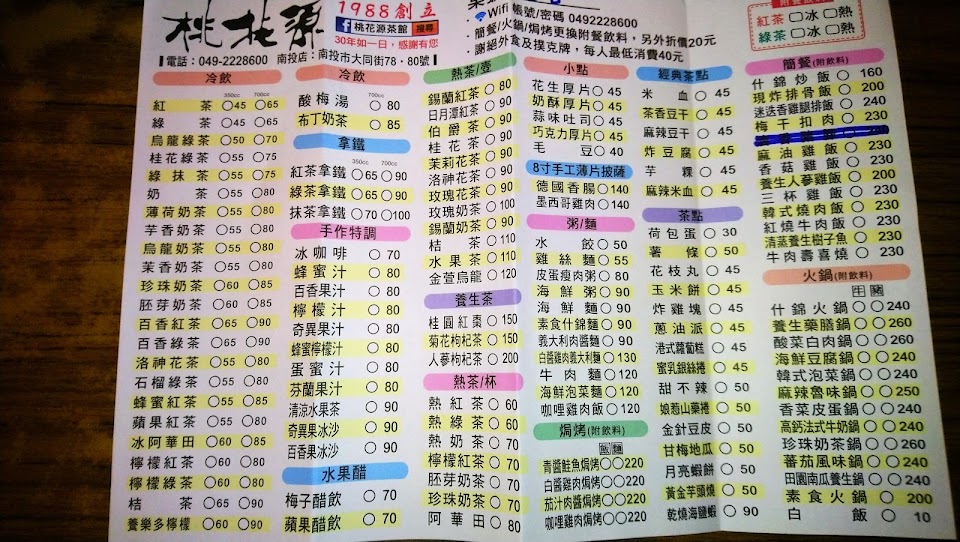 桃花源
1988創立
f 桃花源茶館 搜尋
30年如一日，感謝有您
電話：049-2228600 南投店：南投市大同街78・80號
Wifi帳號/密碼 0492228600
・簡餐/火鍋/焗烤更換附餐飲料，另外折價20元
謝絕外食及撲克牌，每人最低消費40元
紅茶□冰□熱
綠茶□冰□熱
冷飲
350cc 700cc
紅茶 ○45 ○65
綠茶 ○45 ○65
烏龍綠茶 ○50 ○70
桂花綠茶 ○55 ○75
綠抹茶 ○55 ○75
奶茶 ○55 ○80
薄荷奶茶 ○55 ○80
芋香奶茶 ○55 ○80
烏龍奶茶 ○55 ○80
茉香奶茶 ○55 ○80
珍珠奶茶 ○55 ○80
胚芽奶茶 ○55 ○80
百香紅茶 ○65 ○90
百香綠茶 ○65 ○90
洛神花茶 ○55 ○80
石榴綠茶 ○55 ○80
蜂蜜紅茶 ○55 ○80
蘋果紅茶 ○55 ○80
冰阿華田 ○60 ○85
檸檬紅茶 ○60 ○85
檸檬綠茶 ○60 ○85
桔茶 ○65 ○90
養樂多檸檬 ○60 ○90
冷飲
700cc
酸梅湯 ○80
布丁奶茶 ○85
拿鐵
350cc 700cc
紅茶拿鐵 ○65 ○90
綠茶拿鐵 ○65 ○90
抹茶拿鐵 ○70 ○100
手作特調
冰咖啡 ○70
蜂蜜汁 ○80
百香果汁 ○80
檸檬汁 ○80
奇異果汁 ○80
蜂蜜檸檬汁 ○80
蛋蜜汁 ○80
芬蘭果汁 ○80
清涼水果茶 ○90
奇異果冰沙 ○90
百香果冰沙 ○90
水果醋
梅子醋飲 ○70
蘋果醋飲 ○70
熱茶/壺
錫蘭紅茶 ○80
日月潭紅茶 ○90
伯爵茶 ○90
桂花茶 ○90
茉莉花茶 ○90
洛神花茶 ○90
玫瑰花茶 ○90
玫瑰奶茶 ○100
錫蘭奶茶 ○100
桔茶 ○110
水果茶 ○110
金萱烏龍 ○120
養生茶
桂圓紅棗 ○150
菊花枸杞茶 ○150
人參枸杞茶 ○200
熱茶/杯
熱紅茶 ○60
熱綠茶 ○60
熱奶茶 ○70
檸檬紅茶 ○70
胚芽奶茶 ○70
珍珠奶茶 ○70
阿華田 ○80
小點
花生厚片 ○45
奶酥厚片 ○45
蒜味吐司 ○45
巧克力厚片 ○45
毛豆 ○40
8寸手工薄片披薩
德國香腸 ○140
墨西哥雞肉 ○140
粥/麵
水餃 ○50
雞絲麵 ○55
皮蛋瘦肉粥 ○80
海鮮粥 ○90
海鮮麵 ○90
素食什錦麵 ○90
義大利肉醬麵 ○90
白醬雞肉義大利麵 ○130
牛肉麵 ○120
海鮮泡菜麵 ○120
咖哩雞肉飯 ○120
焗烤(附飲料)
飯 麵
青醬鮭魚焗烤○○220
白醬雞肉焗烤○○220
茄汁肉醬焗烤○○220
咖哩雞肉焗烤○○220
經典茶點
米血 ○45
茶香豆干 ○45
麻辣豆干 ○45
炸豆腐 ○45
芋粿 ○45
麻辣米血 ○45
茶點
荷包蛋 ○30
薯條 ○50
花枝丸 ○45
玉米餅 ○45
炸雞塊 ○45
蔥油派 ○45
港式蘿蔔糕 ○45
蜜乳銀絲捲 ○45
甜不辣 ○50
娘惹山藥捲 ○50
金針豆皮 ○50
甘梅地瓜 ○50
月亮蝦餅 ○50
黃金芋頭燒 ○50
乾燒海鹽蝦 ○90
簡餐(附飲料)
什錦炒飯 ○160
現炸排骨飯 ○200
迷迭香雞腿排飯 ○240
梅干扣肉 ○240
麻油雞飯 ○230
香菇雞飯 ○230
養生人蔘雞飯 ○230
三杯雞飯 ○230
韓式燒肉飯 ○230
紅燒牛肉飯 ○230
清蒸養生樹子魚 ○230
牛肉壽喜燒 ○230
火鍋(附飲料)
牛 豬
什錦火鍋○○240
養生藥膳鍋○○260
酸菜白肉鍋○○260
海鮮豆腐鍋○○240
韓式泡菜鍋○○240
麻辣臭味鍋○○250
香菜皮蛋鍋○○240
高鈣法式牛奶鍋○○240
珍珠奶茶鍋○○260
蕃茄風味鍋○○240
田園南瓜養生鍋○○240
素食火鍋 ○200
白飯 ○10